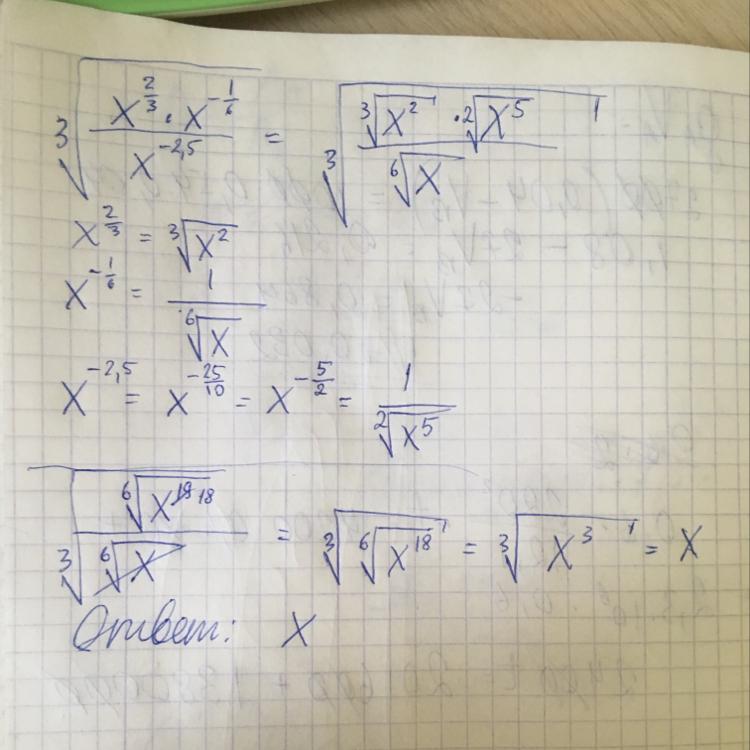 ∛((x^(2/3) · x^(-1/6)) / x^(-2,5)) = ∛((∛(x²) · ²√(x⁵)) / ⁶√x)
x^(2/3) = ∛(x²)
x^(-1/6) = 1 / ⁶√x
x^(-2,5) = x^(-25/10) = x^(-5/2) = 1 / ²√(x⁵)
∛(⁶√(x¹⁸) / ⁶√x) = ∛(⁶√(x¹⁸)) = ∛(x³) = x
Ответ: x